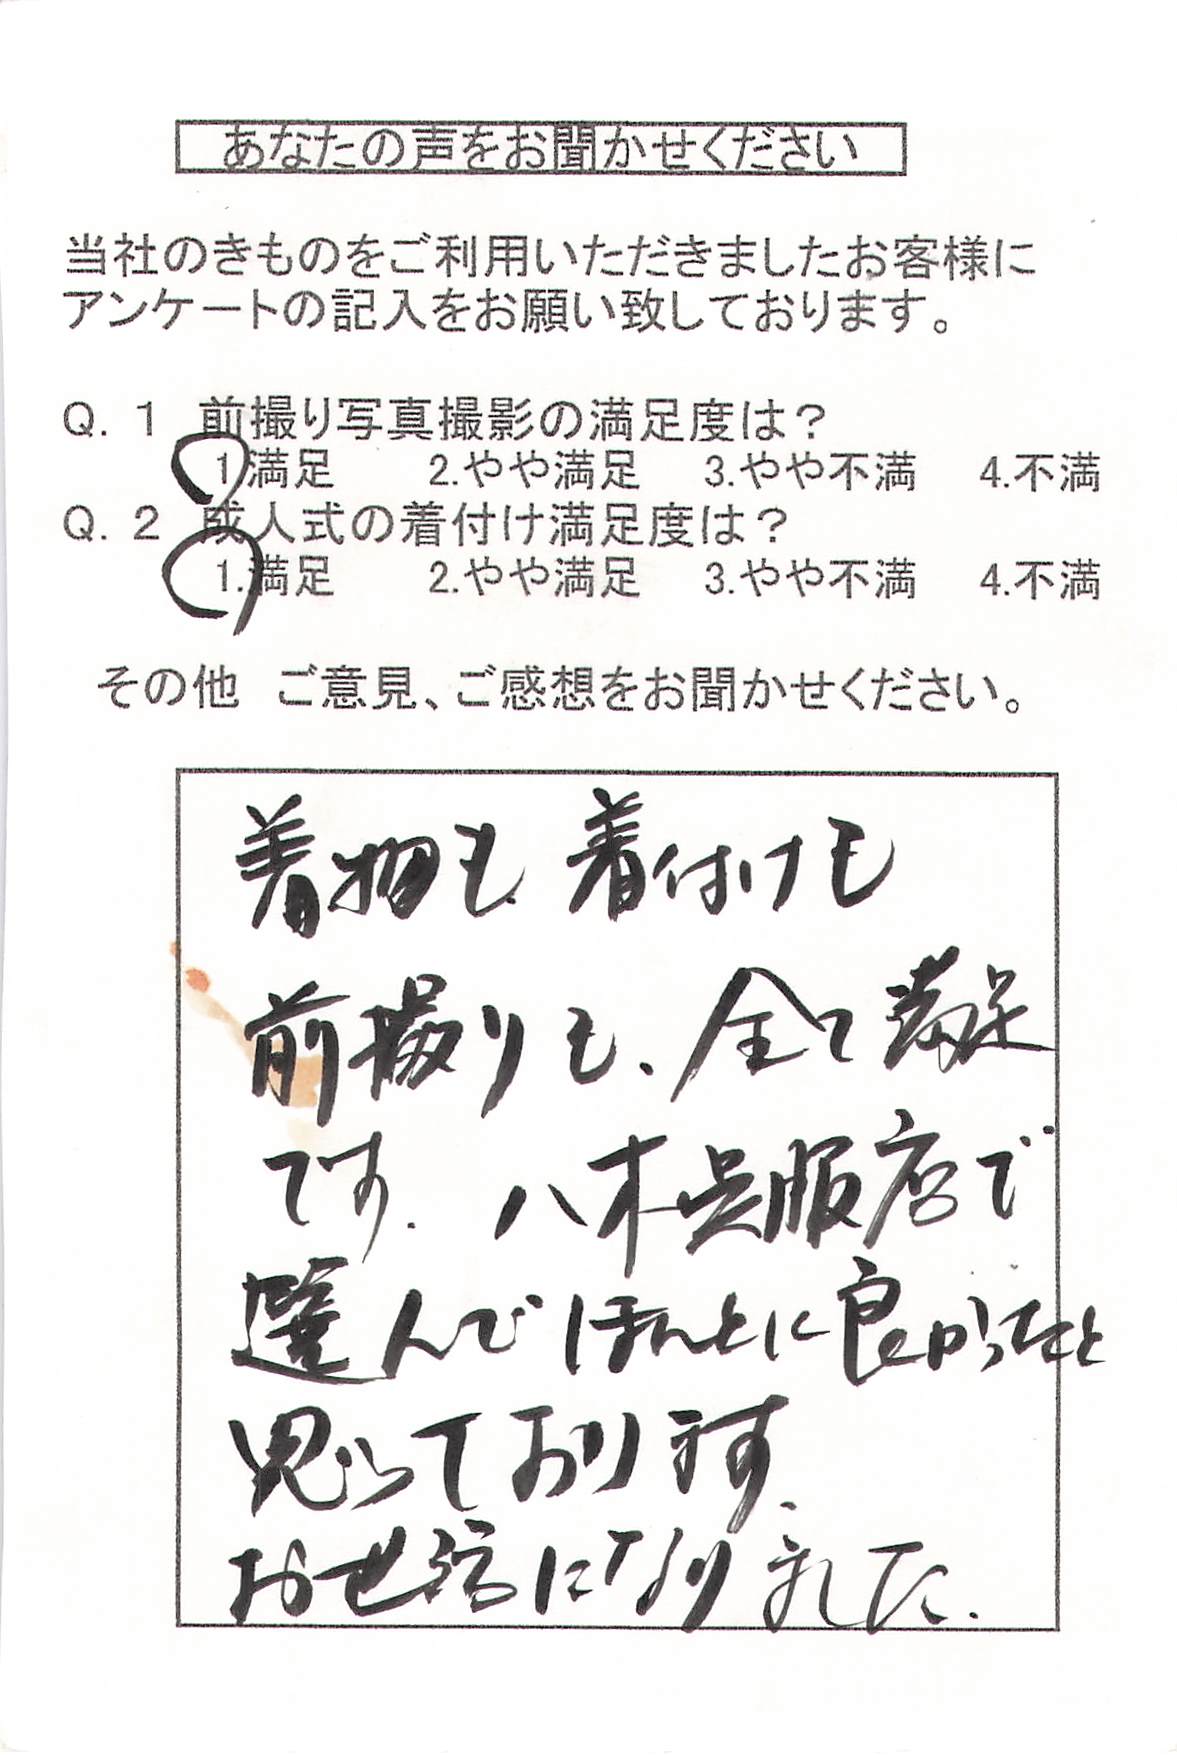 あなたの声をお聞かせください
当社のきものをご利用いただきましたお客様に
アンケートの記入をお願い致しております。
Q.1 前撮り写真撮影の満足度は?
1.満足 2.やや満足 3.やや不満 4.不満
Q.2 成人式の着付け満足度は?
1.満足 2.やや満足 3.やや不満 4.不満
その他 ご意見、ご感想をお聞かせください。
着物も、着付けも
前撮りも、全て満足
です。八木呉服店で
選んでほんとに良かったと
思っております。
お世話になりました。